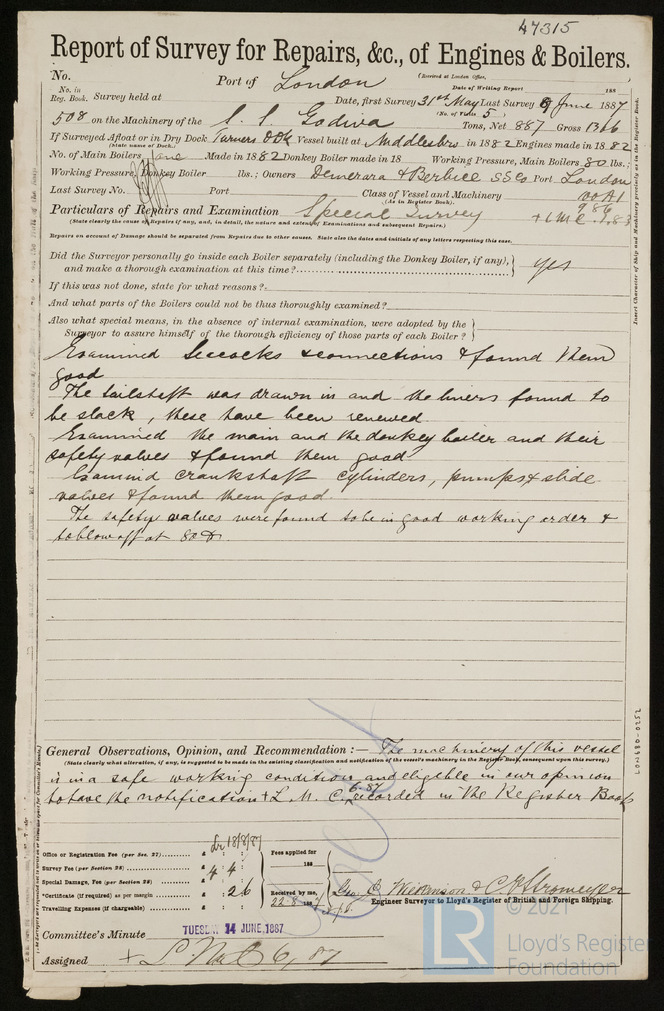 47315
Report of Survey for Repairs, &c., of Engines & Boilers.
No. Port of London (Received at London Office,
No. in Reg. Book. Survey held at Date of Writing Report 188
Date, first Survey 31st May Last Survey 9 June 1887
(No. of Visits 5)
508 on the Machinery of the S. S. Godiva Tons, Net 887 Gross 1316
If Surveyed Afloat or in Dry Dock Turners DDk Vessel built at Middlesbro in 1882 Engines made in 1882
(State name of Dock.)
No. of Main Boilers One Made in 1882 Donkey Boiler made in 18 Working Pressure, Main Boilers 80 lbs.;
Working Pressure, Donkey Boiler lbs.; Owners Demerara & Berbice SSCo Port London
Last Survey No. Port Class of Vessel and Machinery 100A1
(As in Register Book). 9 86
Particulars of Repairs and Examination Special Survey + LMC 9.83
(State clearly the cause of Repairs if any, and, in detail, the nature and extent of Examinations and subsequent Repairs.)
Repairs on account of Damage should be separated from Repairs due to other causes. State also the dates and initials of any letters respecting this case.
Did the Surveyor personally go inside each Boiler separately (including the Donkey Boiler, if any),
and make a thorough examination at this time? yes
If this was not done, state for what reasons?
And what parts of the Boilers could not be thus thoroughly examined?
Also what special means, in the absence of internal examination, were adopted by the
Surveyor to assure himself of the thorough efficiency of those parts of each Boiler?
Examined Seacocks & connections & found them
good
The tailshaft was drawn in and the liners found to
be slack, these have been renewed
Examined the main and the donkey boiler and their
safety valves & found them good
Examind crankshaft cylinders, pumps & slide
valves & found them good
The safety valves were found to be in good working order &
to blow off at 80 lbs.
General Observations, Opinion, and Recommendation :— The machinery of this vessel
(State clearly what alteration, if any, is suggested to be made in the existing classification and notification of the vessel's machinery in the Register Book, consequent upon this survey.)
is in a safe working condition and eligible in our opinion
to have the notification + L. M. C. 6.87 recorded in the Register Book
Office or Registration Fee (per Sec. 27) £ : : Fees applied for
Survey Fee (per Section 28) £ 4 : 4 : 188
Special Damage, Fee (per Section 28) £ : :
*Certificate (if required) as per margin £ : 2 6 Received by me,
Travelling Expenses (if chargeable) £ : : 22.8. 1887
Geo. C. Wilkinson & C. E. Stromeyer
Engineer Surveyor to Lloyd's Register of British and Foreign Shipping.
Committee's Minute TUESDAY 14 JUNE, 1887
Assigned + L.M.C 6, 87
Insert Character of Ship and Machinery precisely as in the Register Book.
LON680-0252
© 2021
LR
Lloyd's Register
Foundation